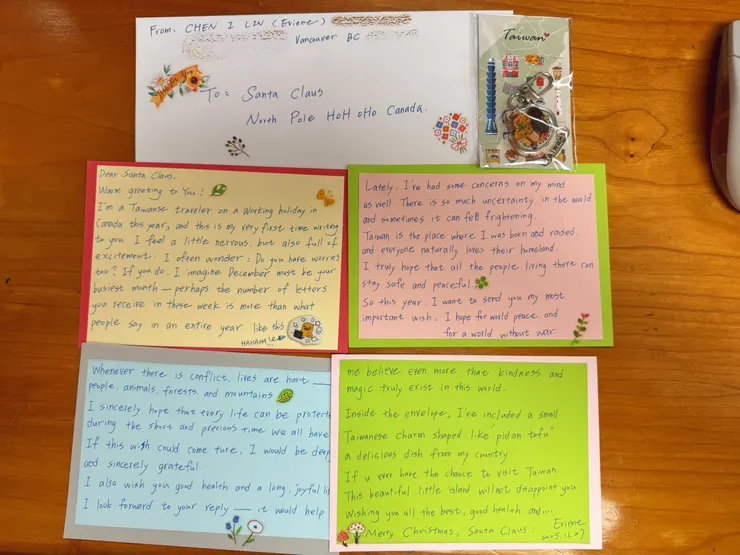 From: CHEN I LIN (Eriene)
Vancouver BC
To = Santa Claus
North Pole HoH oHo Canada.
Taiwan
Dear Santa Claus.
Warm greeting to You!
I'm a Taiwanse traveler on a working holiday in
Canada this year, and this is my very first time writing
to you I feel a little nervous. but also full of
excitement. I ofeen wonder: Do you have worries
too? If you do. I imagine December must be your
busiest month — perhaps the number of letters
you receive in these week is more than what
people say in an entire year. like this
HAHAHA
Lately. I've had some concerns on my mind
as well. There is so much uncertainty in the world
and sometimes it can feel frightening.
Taiwan is the place where I was born and raised.
and everyone naturally loves their homeland.
I truly hope that all the people living there can
stay safe and peaceful.
So this year. I want to send you my most
important wish. I hope for world peace. and
for a world without war
Whenever there is conflict. lives are hurt —
people, animals, forests. and mountains
I sincerely hope that every life can be protecte
during the short and precious time we all have
If this wish could come ture, I would be deep
and sincerely grateful.
I also wish you good health and a long, joyful li
I look forward to your reply — it would help
me believe even more that kindness and
magic truly exist in this world.
Inside the envelope, I've included a small
Taiwanese charm shaped like "pidan tofu"
a delicious dish from my country.
If u ever have the chance to visit Taiwan
This beautiful little island will not disappoint you
Wishing you all the best, good health and....
Merry Christmas, Santa Claus!
Eriene
2025.11.27